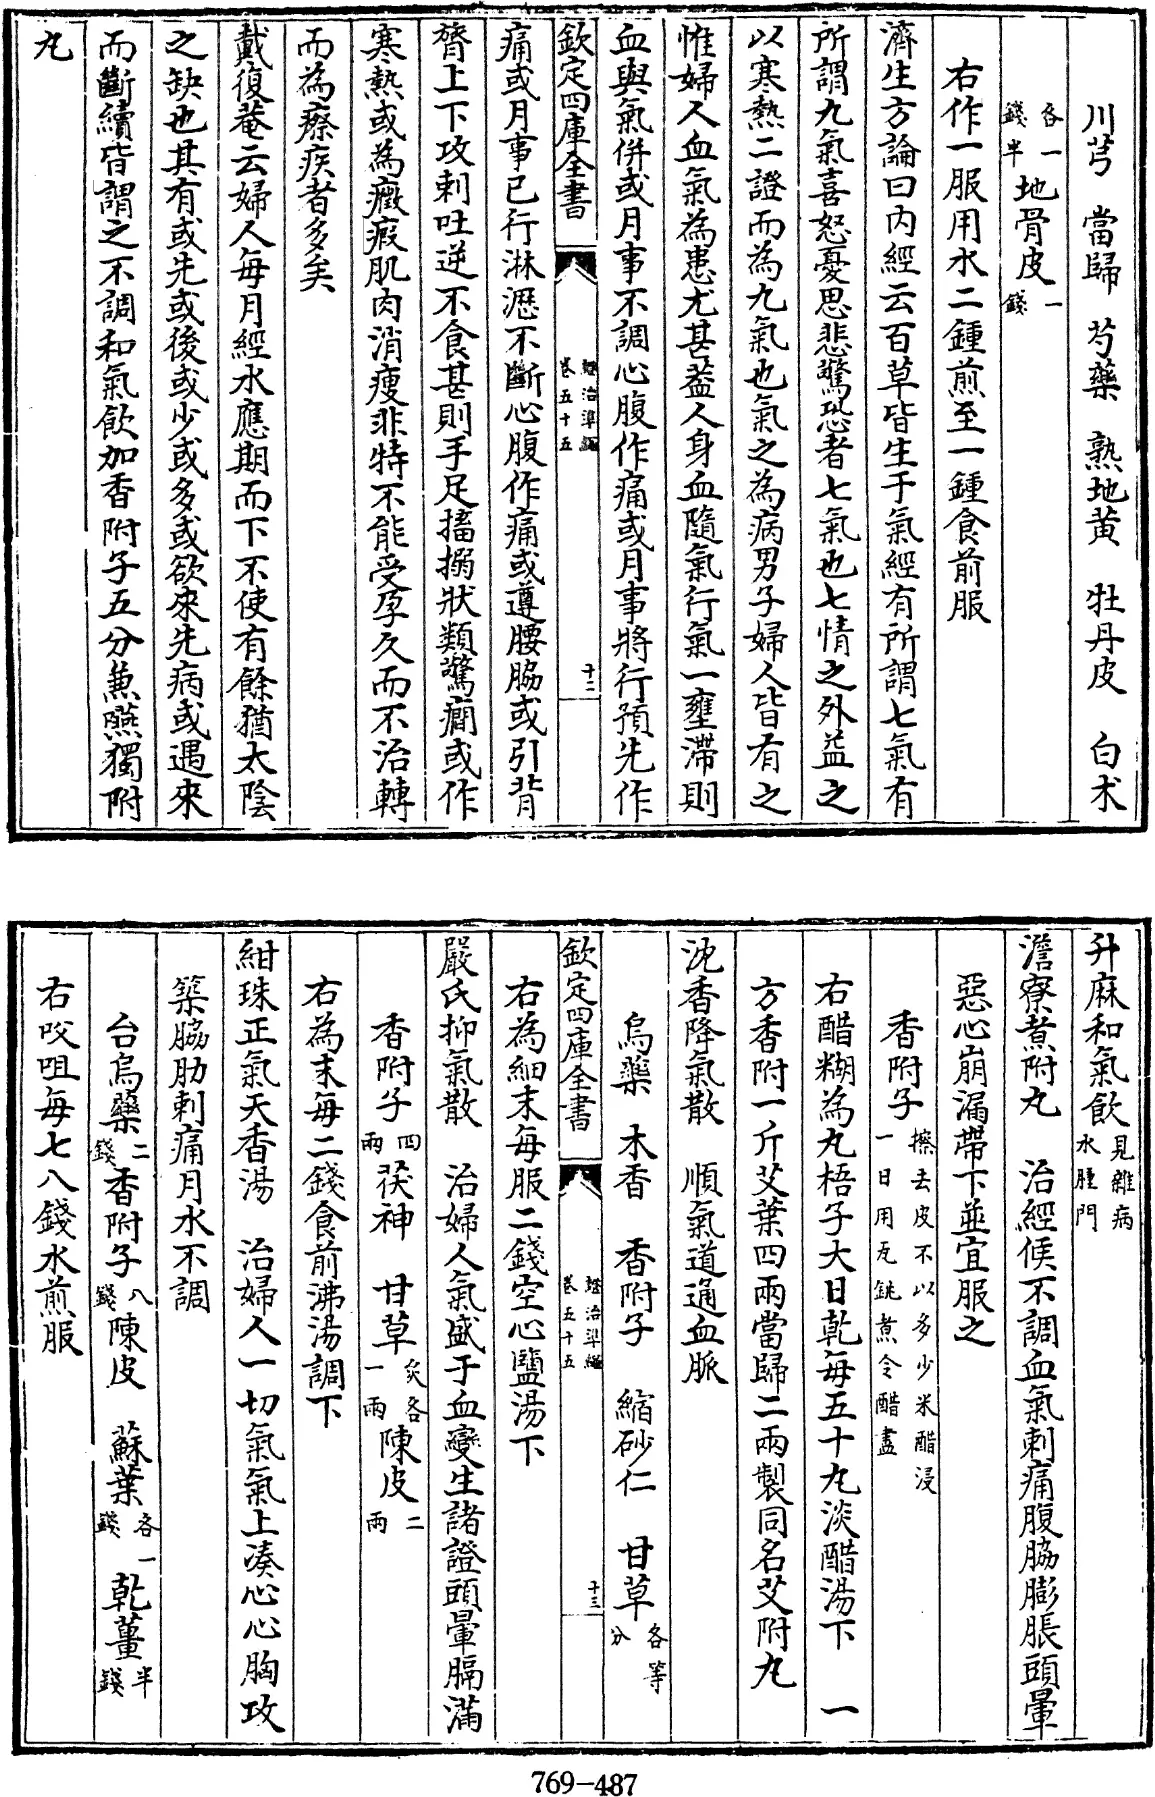 川芎　當歸　芍藥　熟地黄　牡丹皮　白术
各一錢半地骨皮一錢
右作一服用水二鍾煎至一鍾食前服
濟生方論曰内經云百草皆生于氣經有所謂七氣有
所謂九氣喜怒憂思悲驚恐者七氣也七情之外益之
以寒熱二證而為九氣也氣之為病男子婦人皆有之
惟婦人血氣為患尤甚葢人身血隨氣行氣一壅滯則
血與氣併或月事不調心腹作痛或月事將行預先作
欽定四庫全書　證治準繩卷五十五　十二
痛或月事已行淋瀝不斷心腹作痛或遵腰脇或引背
膂上下攻刺吐逆不食甚則手足搐搦狀類驚癎或作
寒熱或為癥瘕肌肉消瘦非特不能受孕久而不治轉
而為瘵疾者多矣
戴復菴云婦人每月經水應期而下不使有餘猶太陰
之缺也其有或先或後或少或多或欲來先病或遇來
而斷續皆謂之不調和氣飲加香附子五分兼嚥獨附
丸
升麻和氣飲見雜病水腫門
澹寮煮附丸　治經候不調血氣刺痛腹脇膨脹頭暈
惡心崩漏帶下並宜服之
香附子擦去皮不以多少米醋浸一日用瓦銚煮令醋盡
右醋糊為丸梧子大日乾每五十丸淡醋湯下　一
方香附一斤艾葉四兩當歸二兩製同名艾附丸
沈香降氣散　順氣道通血脈
烏藥　木香　香附子　縮砂仁　甘草各等分
欽定四庫全書　證治準繩卷五十五　十三
右為細末每服二錢空心鹽湯下
嚴氏抑氣散　治婦人氣盛于血變生諸證頭暈膈滿
香附子四兩茯神　甘草炙各一兩陳皮二兩
右為末每二錢食前沸湯調下
紺珠正氣天香湯　治婦人一切氣氣上凑心心胸攻
築脇肋刺痛月水不調
台烏藥二錢香附子八錢陳皮　蘇葉各一錢乾薑半錢
右㕮咀每七八錢水煎服
769-487